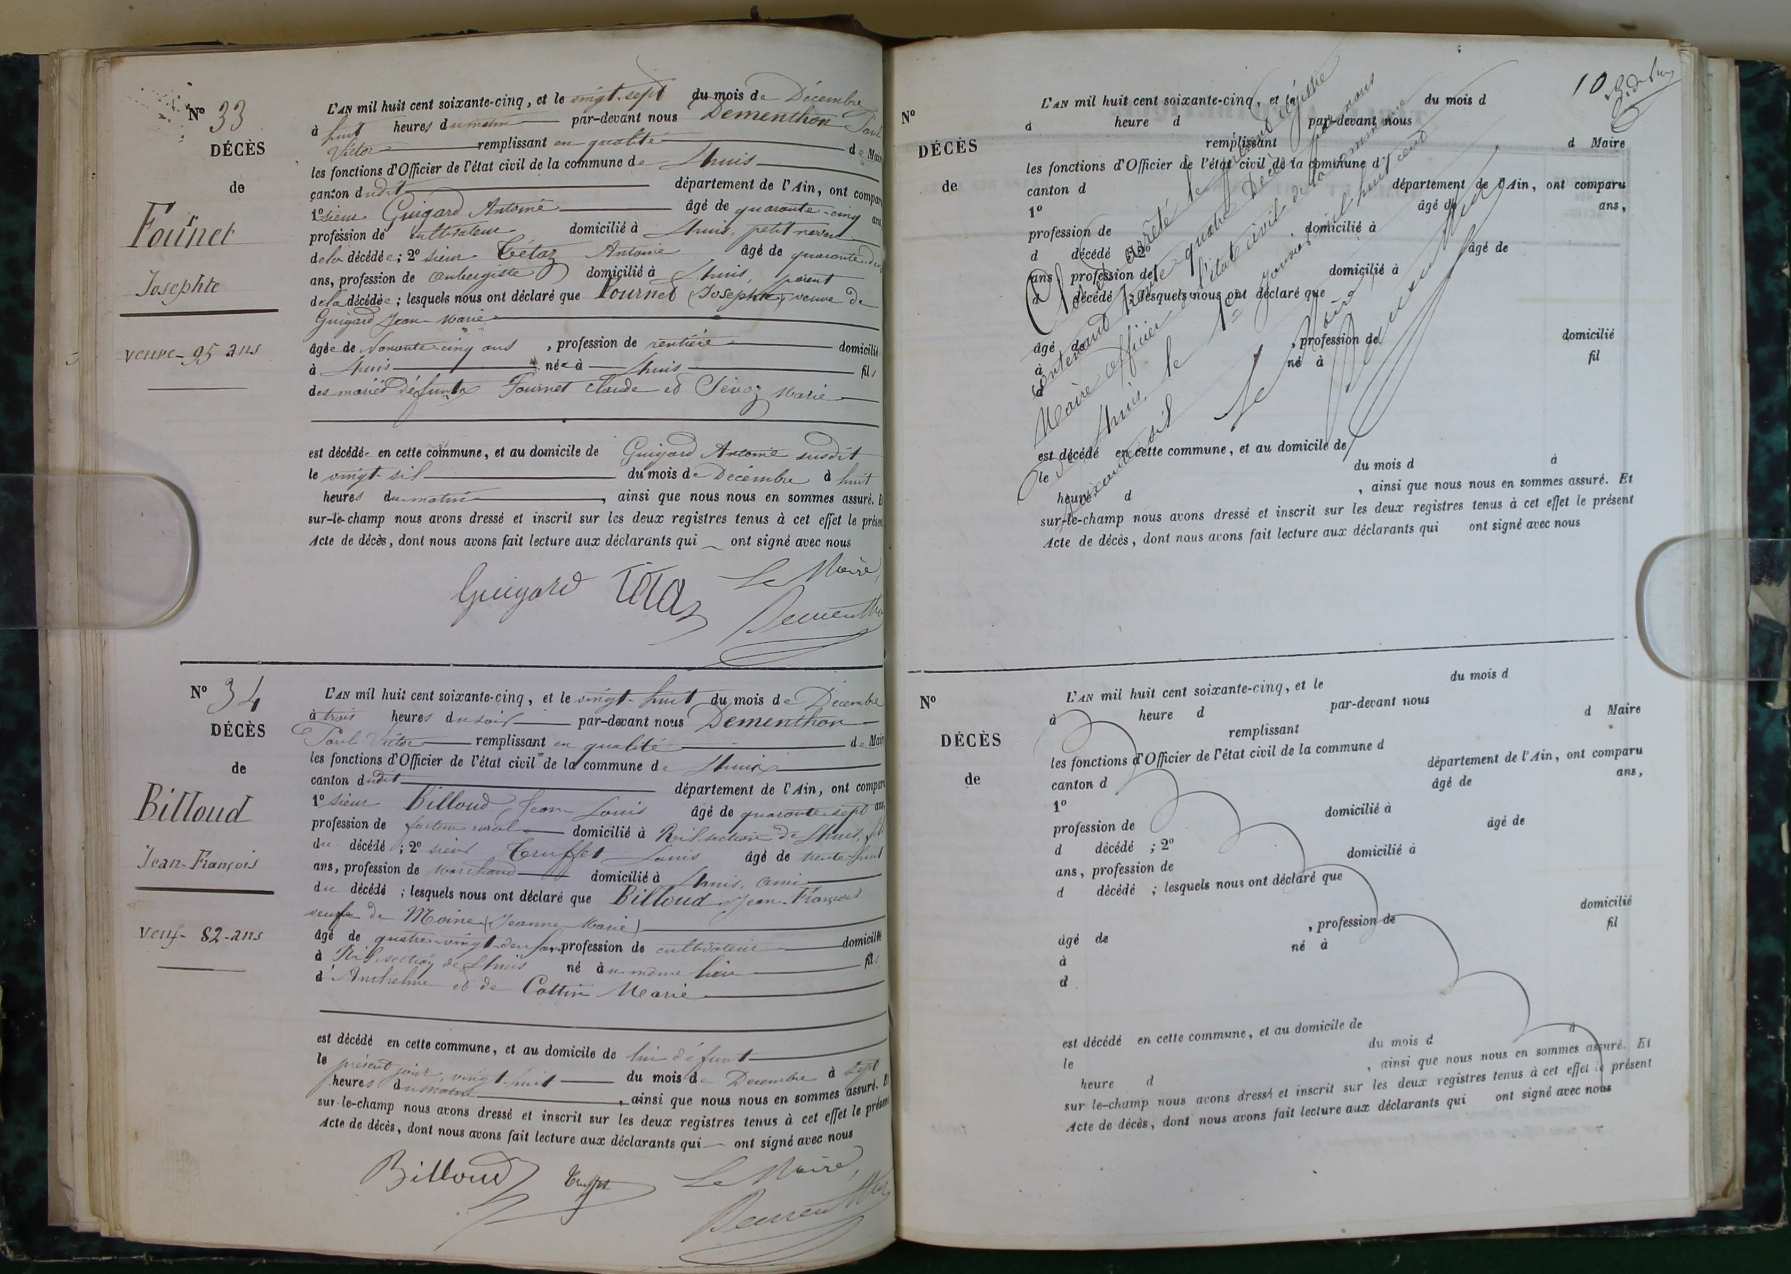 N° 33
DÉCÈS
de
Fournet
Josephte
veuve - 95 ans
L'AN mil huit cent soixante-cinq, et le vingt-sept du mois de Décembre
à huit heures du matin par-devant nous Dementhon Paul
Victor remplissant en qualité de Maire
les fonctions d'Officier de l'état civil de la commune de Lhuis
canton dudit département de l'Ain, ont comparu
1° sieur Guigard Antoine âgé de quarante-cinq ans
profession de cultivateur domicilié à Lhuis, petit neveu
de la décédée; 2° sieur Tétaz Antoine âgé de quarante
ans, profession de aubergiste domicilié à Lhuis, parent
de la décédée; lesquels nous ont déclaré que Fournet (Josephte) veuve de
Guigard Jean Marie
âgée de nonante cinq ans, profession de rentière domicilié
à Lhuis née à Lhuis fille
des mariés défunts Fournet Claude et Marie
est décédée en cette commune, et au domicile de Guigard Antoine susdit
le vingt-six du mois de Décembre à huit
heures du matin, ainsi que nous nous en sommes assuré. Et
sur-le-champ nous avons dressé et inscrit sur les deux registres tenus à cet effet le présent
Acte de décès, dont nous avons fait lecture aux déclarants qui ont signé avec nous
Guigard Tétaz Le Maire,
Dementhon
N° 34
DÉCÈS
de
Billoud
Jean-François
veuf - 82 ans
L'AN mil huit cent soixante-cinq, et le vingt-huit du mois de Décembre
à trois heures du soir par-devant nous Dementhon
Paul Victor remplissant en qualité de Maire
les fonctions d'Officier de l'état civil de la commune de Lhuis
canton dudit département de l'Ain, ont comparu
1° sieur Billoud Jean Louis âgé de quarante-sept ans
profession de facteur rural domicilié à section de Lhuis, fils
du décédé; 2° sieur Truffet Louis âgé de trente-huit
ans, profession de marchand domicilié à Lhuis, ami
du décédé; lesquels nous ont déclaré que Billoud Jean-François
veuf de Moine (Jeanne Marie)
âgé de quatre-vingt-deux ans, profession de cultivateur domicilié
à section de Lhuis né au même lieu fils
d'Anthelme et de Cottin Marie
est décédé en cette commune, et au domicile de lui défunt
le présent jour, vingt-huit du mois de Décembre à sept
heures du matin, ainsi que nous nous en sommes assuré. Et
sur-le-champ nous avons dressé et inscrit sur les deux registres tenus à cet effet le présent
Acte de décès, dont nous avons fait lecture aux déclarants qui ont signé avec nous
Billoud Truffet Le Maire,
Dementhon
10
N°
DÉCÈS
de
L'AN mil huit cent soixante-cinq, et le du mois d
à heure d par-devant nous
remplissant d Maire
les fonctions d'Officier de l'état civil de la commune d
canton d département de l'Ain, ont comparu
1° âgé de ans,
profession de domicilié à
d décédé ; 2° âgé de
ans, profession de domicilié à
d décédé ; lesquels nous ont déclaré que
âgé de , profession de domicilié
à né à fil
d
est décédé en cette commune, et au domicile de
le du mois d à
heure d , ainsi que nous nous en sommes assuré. Et
sur-le-champ nous avons dressé et inscrit sur les deux registres tenus à cet effet le présent
Acte de décès, dont nous avons fait lecture aux déclarants qui ont signé avec nous
Clos et arrêté le présent registre
contenant trente quatre Décès par nous
Maire officier de l'état civil de la commune
de Lhuis le 1er Janvier mil huit cent
soixante six
Le Maire,
Dementhon
N°
DÉCÈS
de
L'AN mil huit cent soixante-cinq, et le du mois d
à heure d par-devant nous
remplissant d Maire
les fonctions d'Officier de l'état civil de la commune d
canton d département de l'Ain, ont comparu
1° âgé de ans,
profession de domicilié à
d décédé ; 2° âgé de
ans, profession de domicilié à
d décédé ; lesquels nous ont déclaré que
âgé de , profession de domicilié
à né à fil
d
est décédé en cette commune, et au domicile de
le du mois d à
heure d , ainsi que nous nous en sommes assuré. Et
sur-le-champ nous avons dressé et inscrit sur les deux registres tenus à cet effet le présent
Acte de décès, dont nous avons fait lecture aux déclarants qui ont signé avec nous